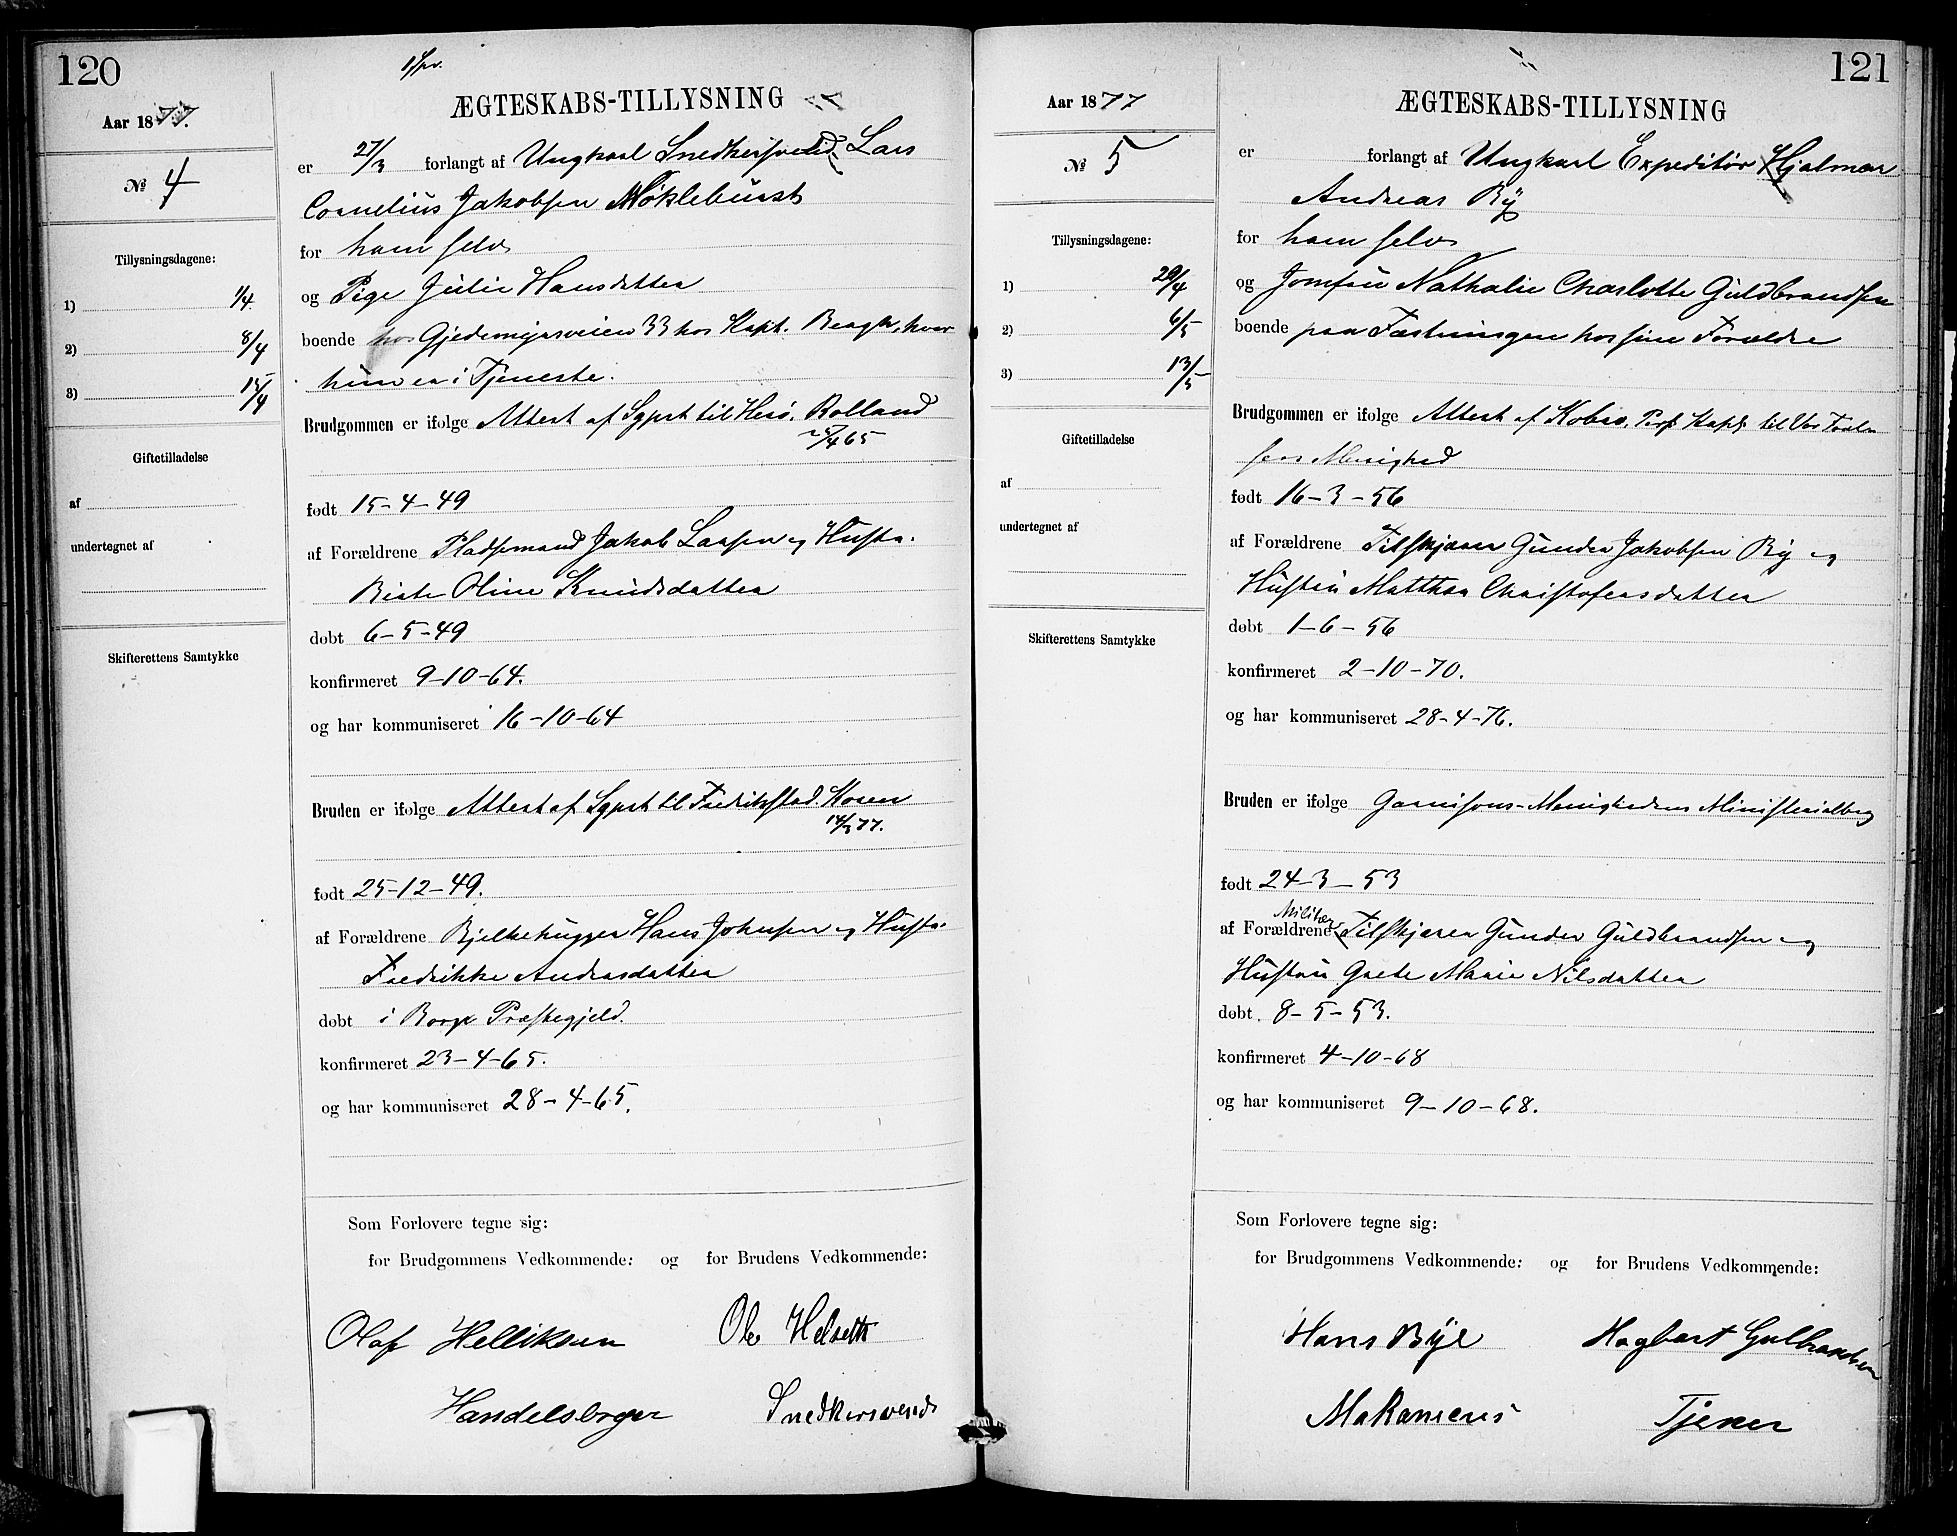 120
Aar 1877.
№ 4
Tillysningsdagene:
1) 1/4.
2) 8/4
3) 15/4
Giftetilladelse
af
undertegnet af
Skifterettens Samtykke
ÆGTESKABS-TILLYSNING
er 27/3 forlangt af Ungkarl Snedkersvend Lars
Cornelius Jakobsen Møklebust
for ham selv
og Pige Julie Hansdatter
boende hos Gjedemyrsveien 33 hos Kapt. Bergh, hvor
hun er i Tjeneste.
Brudgommen er ifølge Attest af Sgprst til Herø. Rolland
65
født 15-4-49
af Forældrene Pladsemand Jakob Larsen og Hustr.
Birte Oline Knudsdatter
døbt 6-5-49
konfirmeret 9-10-64.
og har kommuniseret 16-10-64
Bruden er ifølge Attest af Sgprst til Fredrikstad.
14/3 77.
født 25-12-49.
af Forældrene Bjelkehugger Hans Johnsen og Hustr.
Fredrikke Andreasdatter
døbt i Borge Præstegjeld.
konfirmeret 23-4-65.
og har kommuniseret 28-4-65.
Som Forlovere tegne sig:
for Brudgommens Vedkommende: og for Brudens Vedkommende:
Olaf Helliksen Ole Helseth
Handelsborger Snedkersvend
121
Aar 1877
№ 5
Tillysningsdagene:
1) 29/4
2) 6/5
3) 13/5
Giftetilladelse
af
undertegnet af
Skifterettens Samtykke
ÆGTESKABS-TILLYSNING
er forlangt af Ungkarl Expeditør Hjalmar
Andreas By
for ham selv
og Jomfru Nathalie Charlotte Guldbrandsen
boende paa Fæstningen hos sine Forældre
Brudgommen er ifølge Attest af Pers. Kapt til Vor Frels
sers Menighed
født 16-3-56
af Forældrene Filskjærer Gunder Jakobsen By og
Hustru Matthea Christofersdatter
døbt 1-6-56
konfirmeret 2-10-70.
og har kommuniseret 28-4-76.
Bruden er ifølge Garnisons-Menighedens Ministerialbog
født 24-3-53
Militær
af Forældrene Filskjærer Gunder Guldbrandsen og
Hustru Grete Marie Nilsdatter
døbt 8-5-53.
konfirmeret 4-10-68
og har kommuniseret 9-10-68.
Som Forlovere tegne sig:
for Brudgommens Vedkommende: og for Brudens Vedkommende:
Hans Bye Hagbart Gulbrandsen
Makaneus Tjener